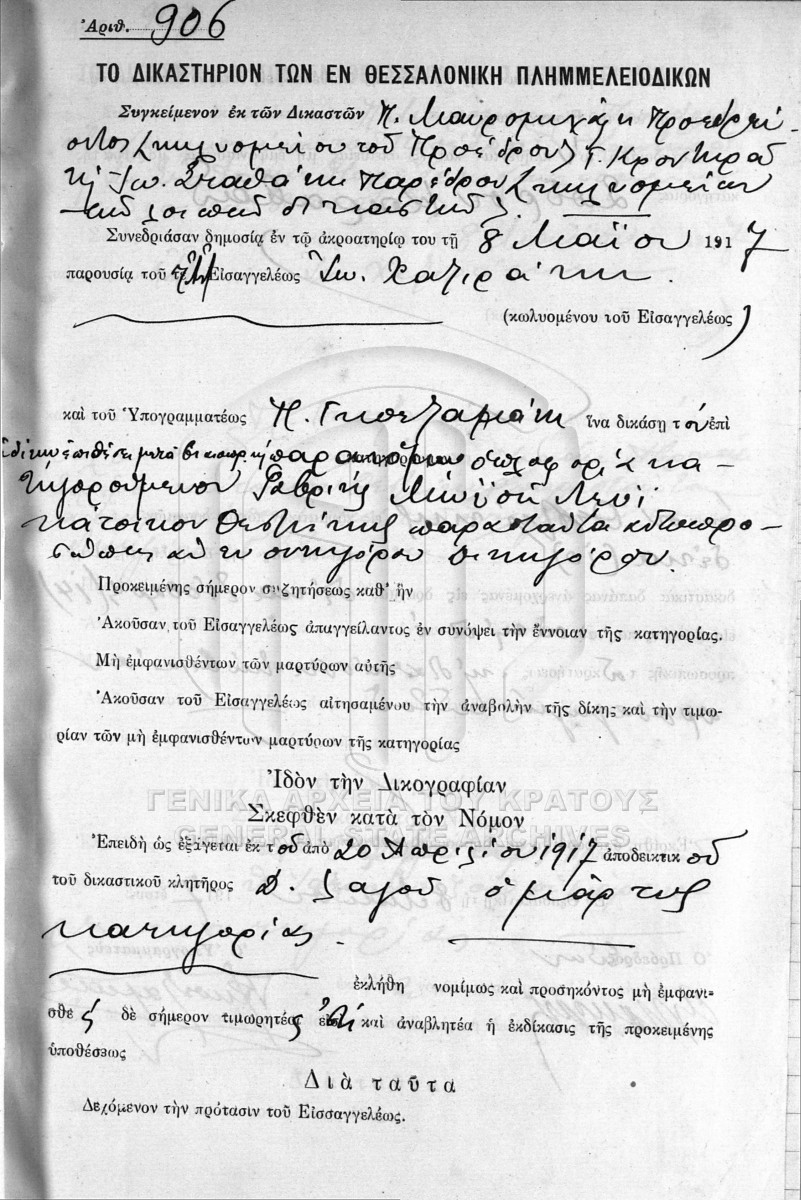 Ἀριθ. 906
ΤΟ ΔΙΚΑΣΤΗΡΙΟΝ ΤΩΝ ΕΝ ΘΕΣΣΑΛΟΝΙΚΗ ΠΛΗΜΜΕΛΕΙΟΔΙΚΩΝ
Συγκείμενον ἐκ τῶν Δικαστῶν Π. Μαυρομιχάλη Προεδρεύ-
οντος κωλυομένου τοῦ Προέδρου
Παρέδρου
Συνεδριάσαν δημοσίᾳ ἐν τῷ ἀκροατηρίῳ του τῇ 8 Μαΐου 1917
παρουσίᾳ τοῦ Εἰσαγγελέως Ἰω.
(κωλυομένου τοῦ Εἰσαγγελέως)
καὶ τοῦ Ὑπογραμματέως ἵνα δικάσῃ τὸν ἐπὶ
παρανόμῳ ὁπλοφορίᾳ κα-
τηγορούμενον Γαβριὴλ Μωϋσῆ Λεβῆ
κάτοικον Θεσ/νίκης παραστάντα αὐτοπρο-
σώπως
Προκειμένης σήμερον συζητήσεως καθ' ἣν
Ἀκοῦσαν τοῦ Εἰσαγγελέως ἀπαγγείλαντος ἐν συνόψει τὴν ἔννοιαν τῆς κατηγορίας.
Μὴ ἐμφανισθέντων τῶν μαρτύρων αὐτῆς
Ἀκοῦσαν τοῦ Εἰσαγγελέως αἰτησαμένου τὴν ἀναβολὴν τῆς δίκης καὶ τὴν τιμω-
ρίαν τῶν μὴ ἐμφανισθέντων μαρτύρων τῆς κατηγορίας
Ἰδὸν τὴν Δικογραφίαν
ΓΕΝΙΚΑ ΑΡΧΕΙΑ ΤΟΥ ΚΡΑΤΟΥΣ
Σκεφθὲν κατὰ τὸν Νόμον
GENERAL STATE ARCHIVES
Ἐπειδὴ ὡς ἐξάγεται ἐκ τοῦ ἀπὸ 20 Ἀπριλίου 1917 ἀποδεικτικοῦ
τοῦ δικαστικοῦ κλητῆρος Δ. ὁ μάρτυς
κατηγορίας
ἐκλήθη νομίμως καὶ προσηκόντος μὴ ἐμφανι-
σθεὶς δὲ σήμερον τιμωρητέος καὶ ἀναβλητέα ἡ ἐκδίκασις τῆς προκειμένης
ὑποθέσεως
Διὰ ταῦτα
Δεχόμενον τὴν πρότασιν τοῦ Εἰσσαγγελέως.